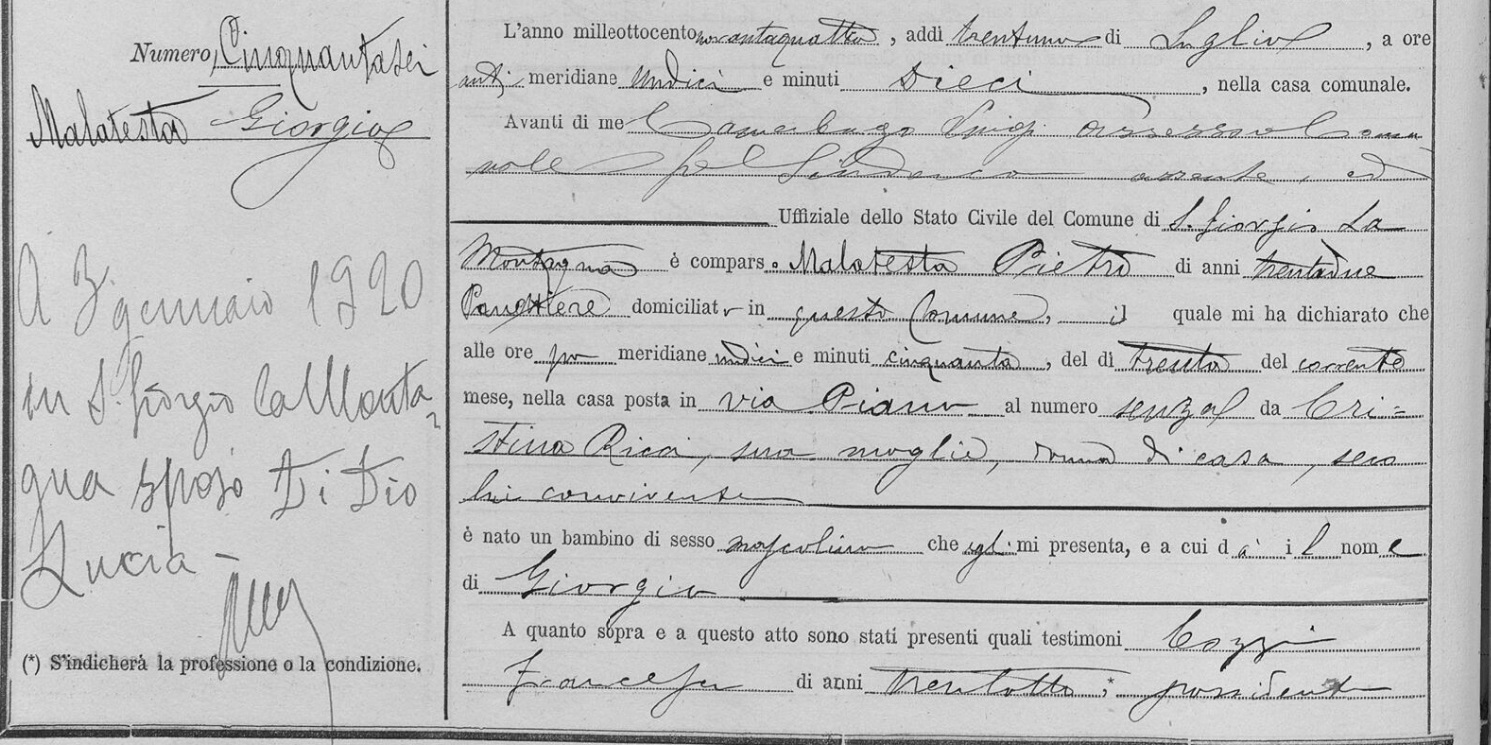 Numero Cinquantasei
Malatesta Giorgio
A 3 gennaio 1920
in S. Giorgio la Monta
gna sposò Di Dio
Lucia -
(*) S'indicherà la professione o la condizione.
L'anno milleottocento novantaquattro, addì trentuno di Luglio, a ore
anti meridiane undici e minuti dieci, nella casa comunale.
Avanti di me Luigi assessore Comu
nale pel Sindaco assente, ed
Uffiziale dello Stato Civile del Comune di S. Giorgio La
Montagna è comparso Malatesta Pietro di anni trentadue
Panettiere domiciliato in questo Comune, il quale mi ha dichiarato che
alle ore po meridiane undici e minuti cinquanta, del dì trenta del corrente
mese, nella casa posta in via Piano al numero senza da Cri=
stina Ricci, sua moglie, donna di casa, seco
lui convivente
è nato un bambino di sesso mascolino che egli mi presenta, e a cui dà il nome
di Giorgio
A quanto sopra e a questo atto sono stati presenti quali testimoni Cozzi
Francesco di anni trentotto, * possidente